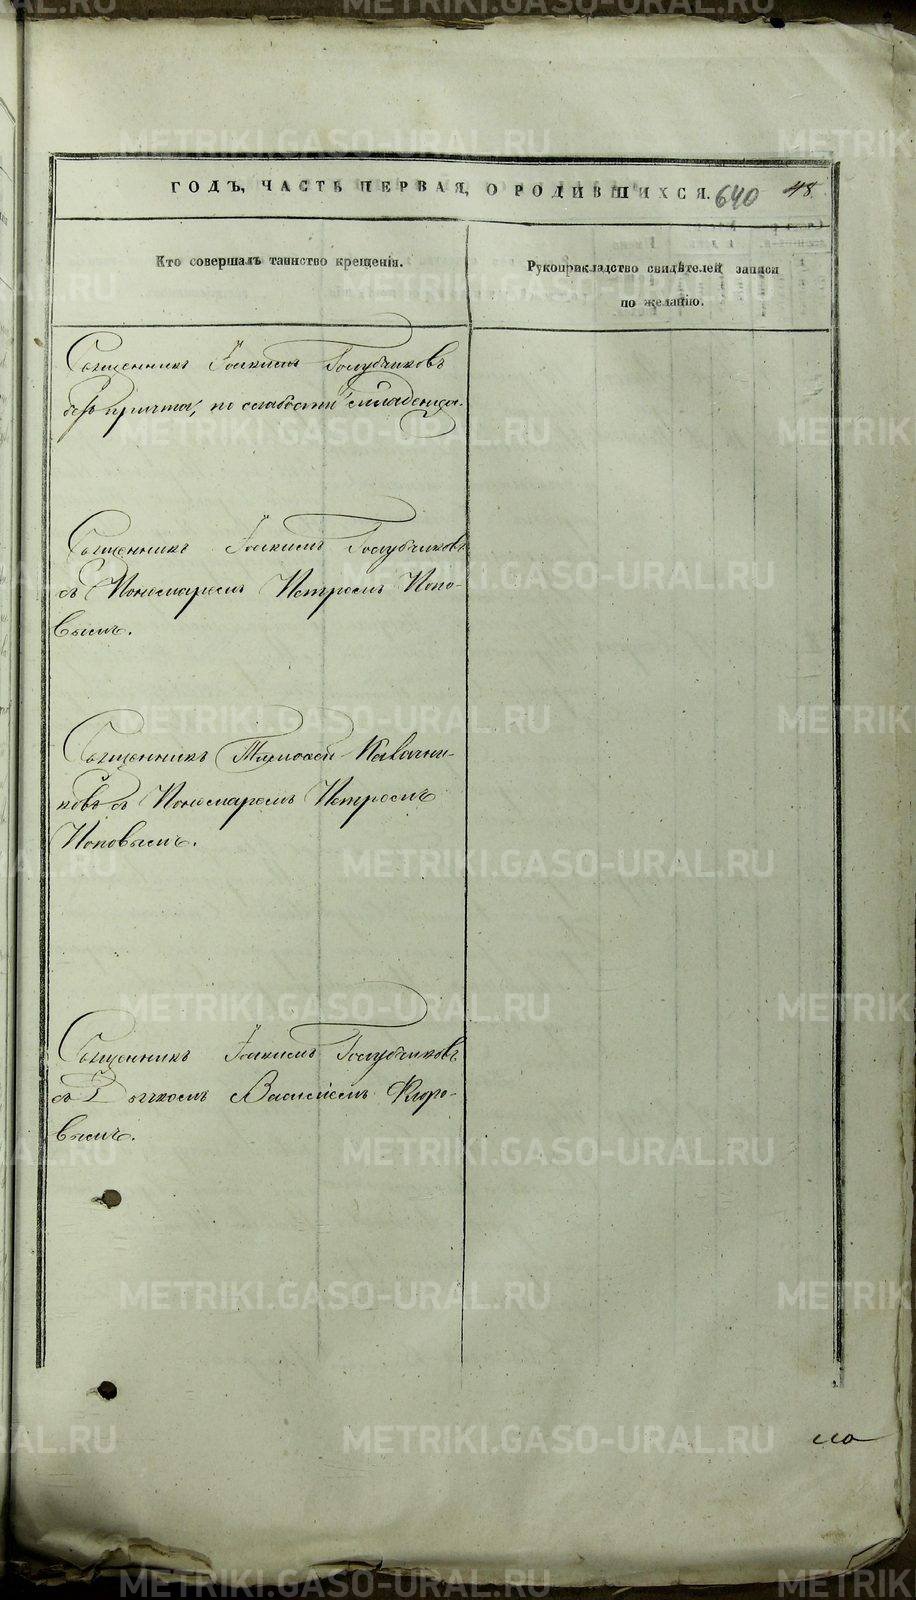 ГОДЪ, ЧАСТЬ ПЕРВАЯ, О РОДИВШИХСЯ. 640 48.
Кто совершалъ таинство крещенія.
Рукоприкладство свидѣтелей записи
по желанію.
Священникъ Іоакимъ Голубчиковъ
безъ причта, по слабости младенца.
Священникъ Іоакимъ Голубчиковъ
съ Пономаремъ Петромъ Попо-
вымъ.
Священникъ Тимофей
съ Пономаремъ Петромъ
Поповымъ.
Священникъ Іоакимъ Голубчиковъ
съ Дьячкомъ Василіемъ Флоро-
вымъ.
METRIKI.GASO-URAL.RU